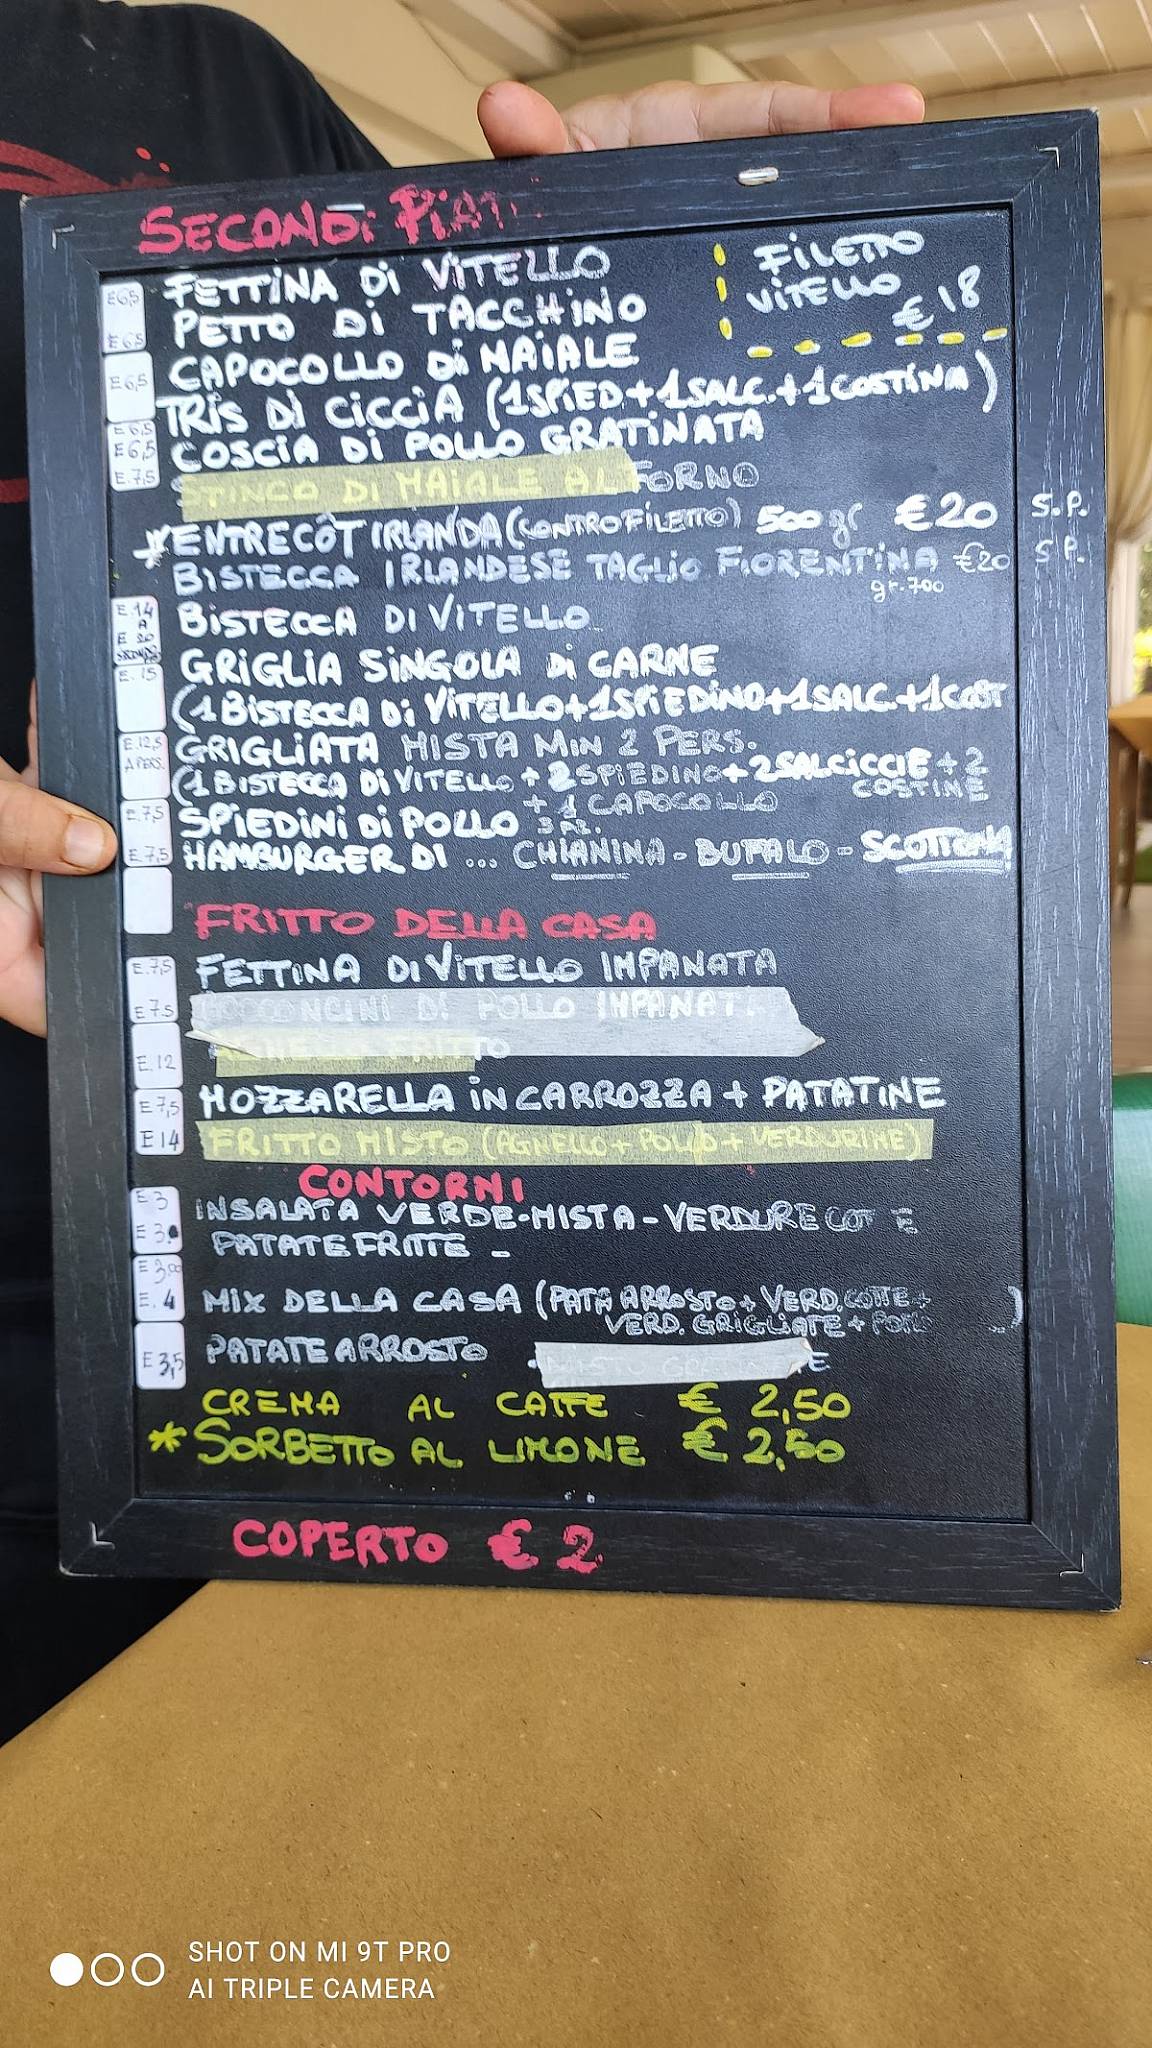 SECONDI PIATTI
FILETTO
VITELLO
€ 18
E6,5 FETTINA DI VITELLO
E6,5 PETTO DI TACCHINO
E6,5 CAPOCOLLO DI MAIALE
E6,5 TRIS DI CICCIA (1 SPIED+1 SALC.+1 COSTINA)
E6,5 COSCIA DI POLLO GRATINATA
E.7,5 STINCO DI MAIALE AL FORNO
*ENTRECÔT IRLANDA (CONTROFILETTO) 500 gr €20 S.P.
BISTECCA IRLANDESE TAGLIO FIORENTINA €20 S.P.
gr.700
E.14 A E 20 BISTECCA DI VITELLO
E.15 GRIGLIA SINGOLA DI CARNE
(1 BISTECCA DI VITELLO+1 SPIEDINO+1 SALC.+1 COST
E.12,5 A PERS. GRIGLIATA MISTA MIN 2 PERS.
(1 BISTECCA DI VITELLO + 2 SPIEDINO+2 SALCICCIE + 2
COSTINE
+ 1 CAPOCOLLO
E.7,5 SPIEDINI DI POLLO 3 PZ.
E.7,5 HAMBURGER DI ... CHIANINA - BUFALO - SCOTTONA
FRITTO DELLA CASA
E.7,5 FETTINA DI VITELLO IMPANATA
E.7,5 BOCCONCINI DI POLLO IMPANATI
E.12 AGNELLO FRITTO
E7,5 MOZZARELLA IN CARROZZA + PATATINE
E14 FRITTO MISTO (AGNELLO + POLLO + VERDURINE)
CONTORNI
E.3 INSALATA VERDE-MISTA - VERDURE COTTE
E3. PATATE FRITTE -
E3,00
E.4 MIX DELLA CASA (PATA ARROSTO+ VERD.COTTE+
VERD. GRIGLIATE + POM )
E3,5 PATATE ARROSTO
CREMA AL CAFFE € 2,50
* SORBETTO AL LIMONE € 2,50
COPERTO € 2
SHOT ON MI 9T PRO
AI TRIPLE CAMERA